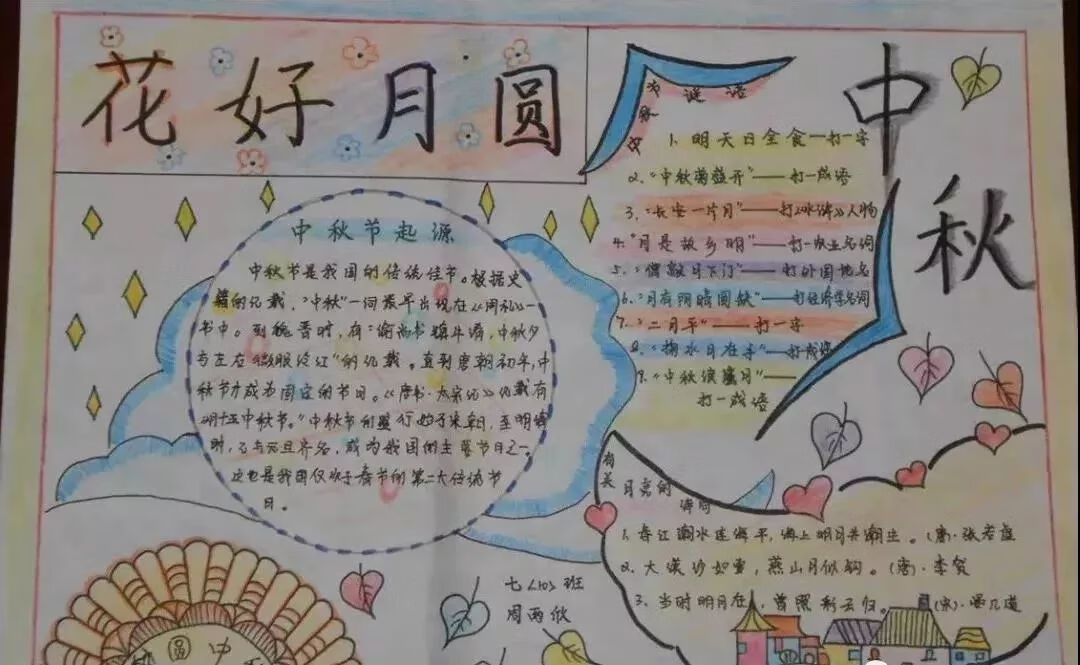 花好月圆
中秋
为您收
谜语
1、明天日全食——打一字
2、“中秋菊盛开”——打一成语
3、“长安一片月”——打《水浒》人物
4、“月是故乡明”——打一业名词
5、“僧敲月下门”——打外国地名
6、“月有阴晴圆缺”——打经济学名词
7、“二月平”——打一字
8、“掬水月在手”——打成语
9、“中秋 月”——
打一成语
中秋节起源
中秋节是我国的传统佳节。根据史
籍的记载，“中秋”一词最早出现在《周礼》一
书中。到魏晋时，有“谕尚书镇牛渚，中秋夕
与左右微服泛江”的记载。直到唐朝初年，中
秋节才成为固定的节日。《唐书·太宗记》记载有
“八月十五中秋节。”中秋节的盛行始于宋朝，至明清
时，已与元旦齐名，成为我国的主要节日之一。
这也是我国仅次于春节的第二大传统节
日。
有关月亮的
诗句
1、春江潮水连海平，海上明月共潮生。（唐）·张若虚
2、大漠沙如雪，燕山月似钩。（唐）·李贺
3、当时明月在，曾照彩云归。（宋）·晏几道
七<10>班
周雨欣
圆中